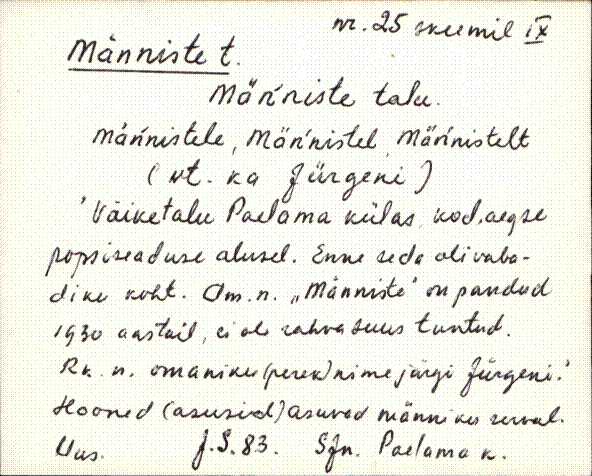 nr. 25 skeemil IX
Männiste t.
Mäńniste talu.
Mäńnistele, Mäńnistel, Mäńnistelt
(vt. ka Jürgeni)
'Väiketalu Paelama külas, kod. aegse
popsiseaduse alusel. Enne seda oli vaba-
diku koht. Om. n. „Männiste" on pandud
1930 aastail, ei ole rahva suus tuntud.
Rk. n. omaniku (perek) nime järgi Jürgeni.'
Hooned (asusid) asuvad männiku serval.
Uus. J.S. 83. Sjn. Paelama k.